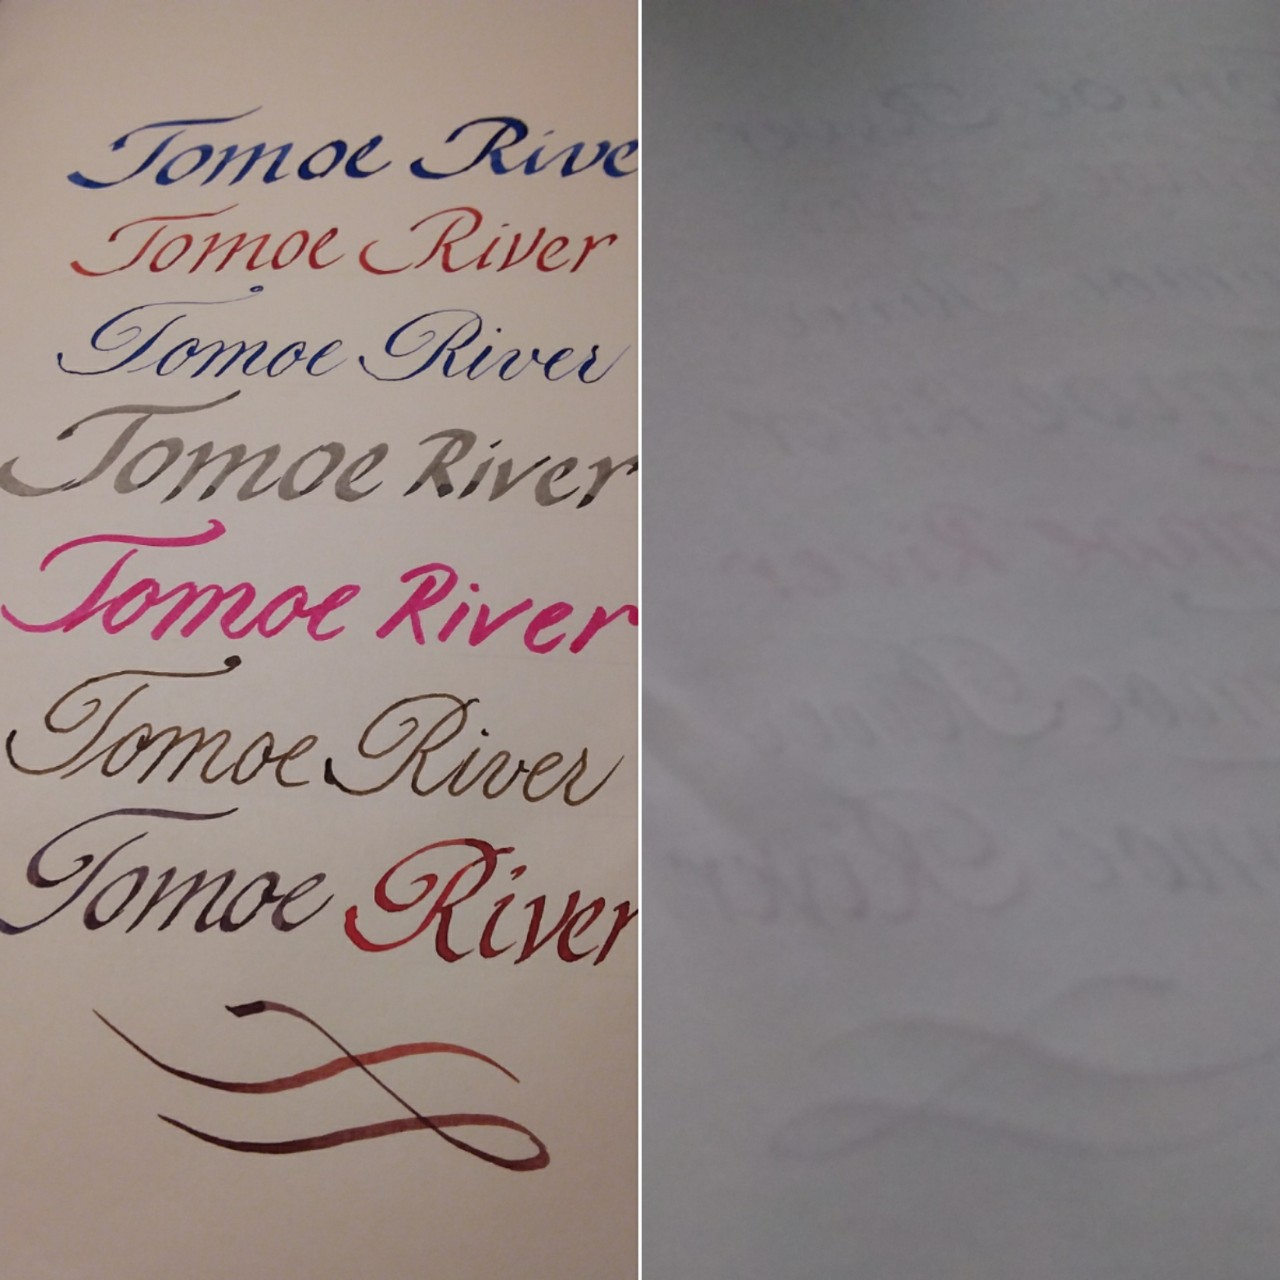 Tomoe Rive
Tomoe River
Tomoe River
Tomoe River
Tomoe River
Tomoe River
Tomoe River